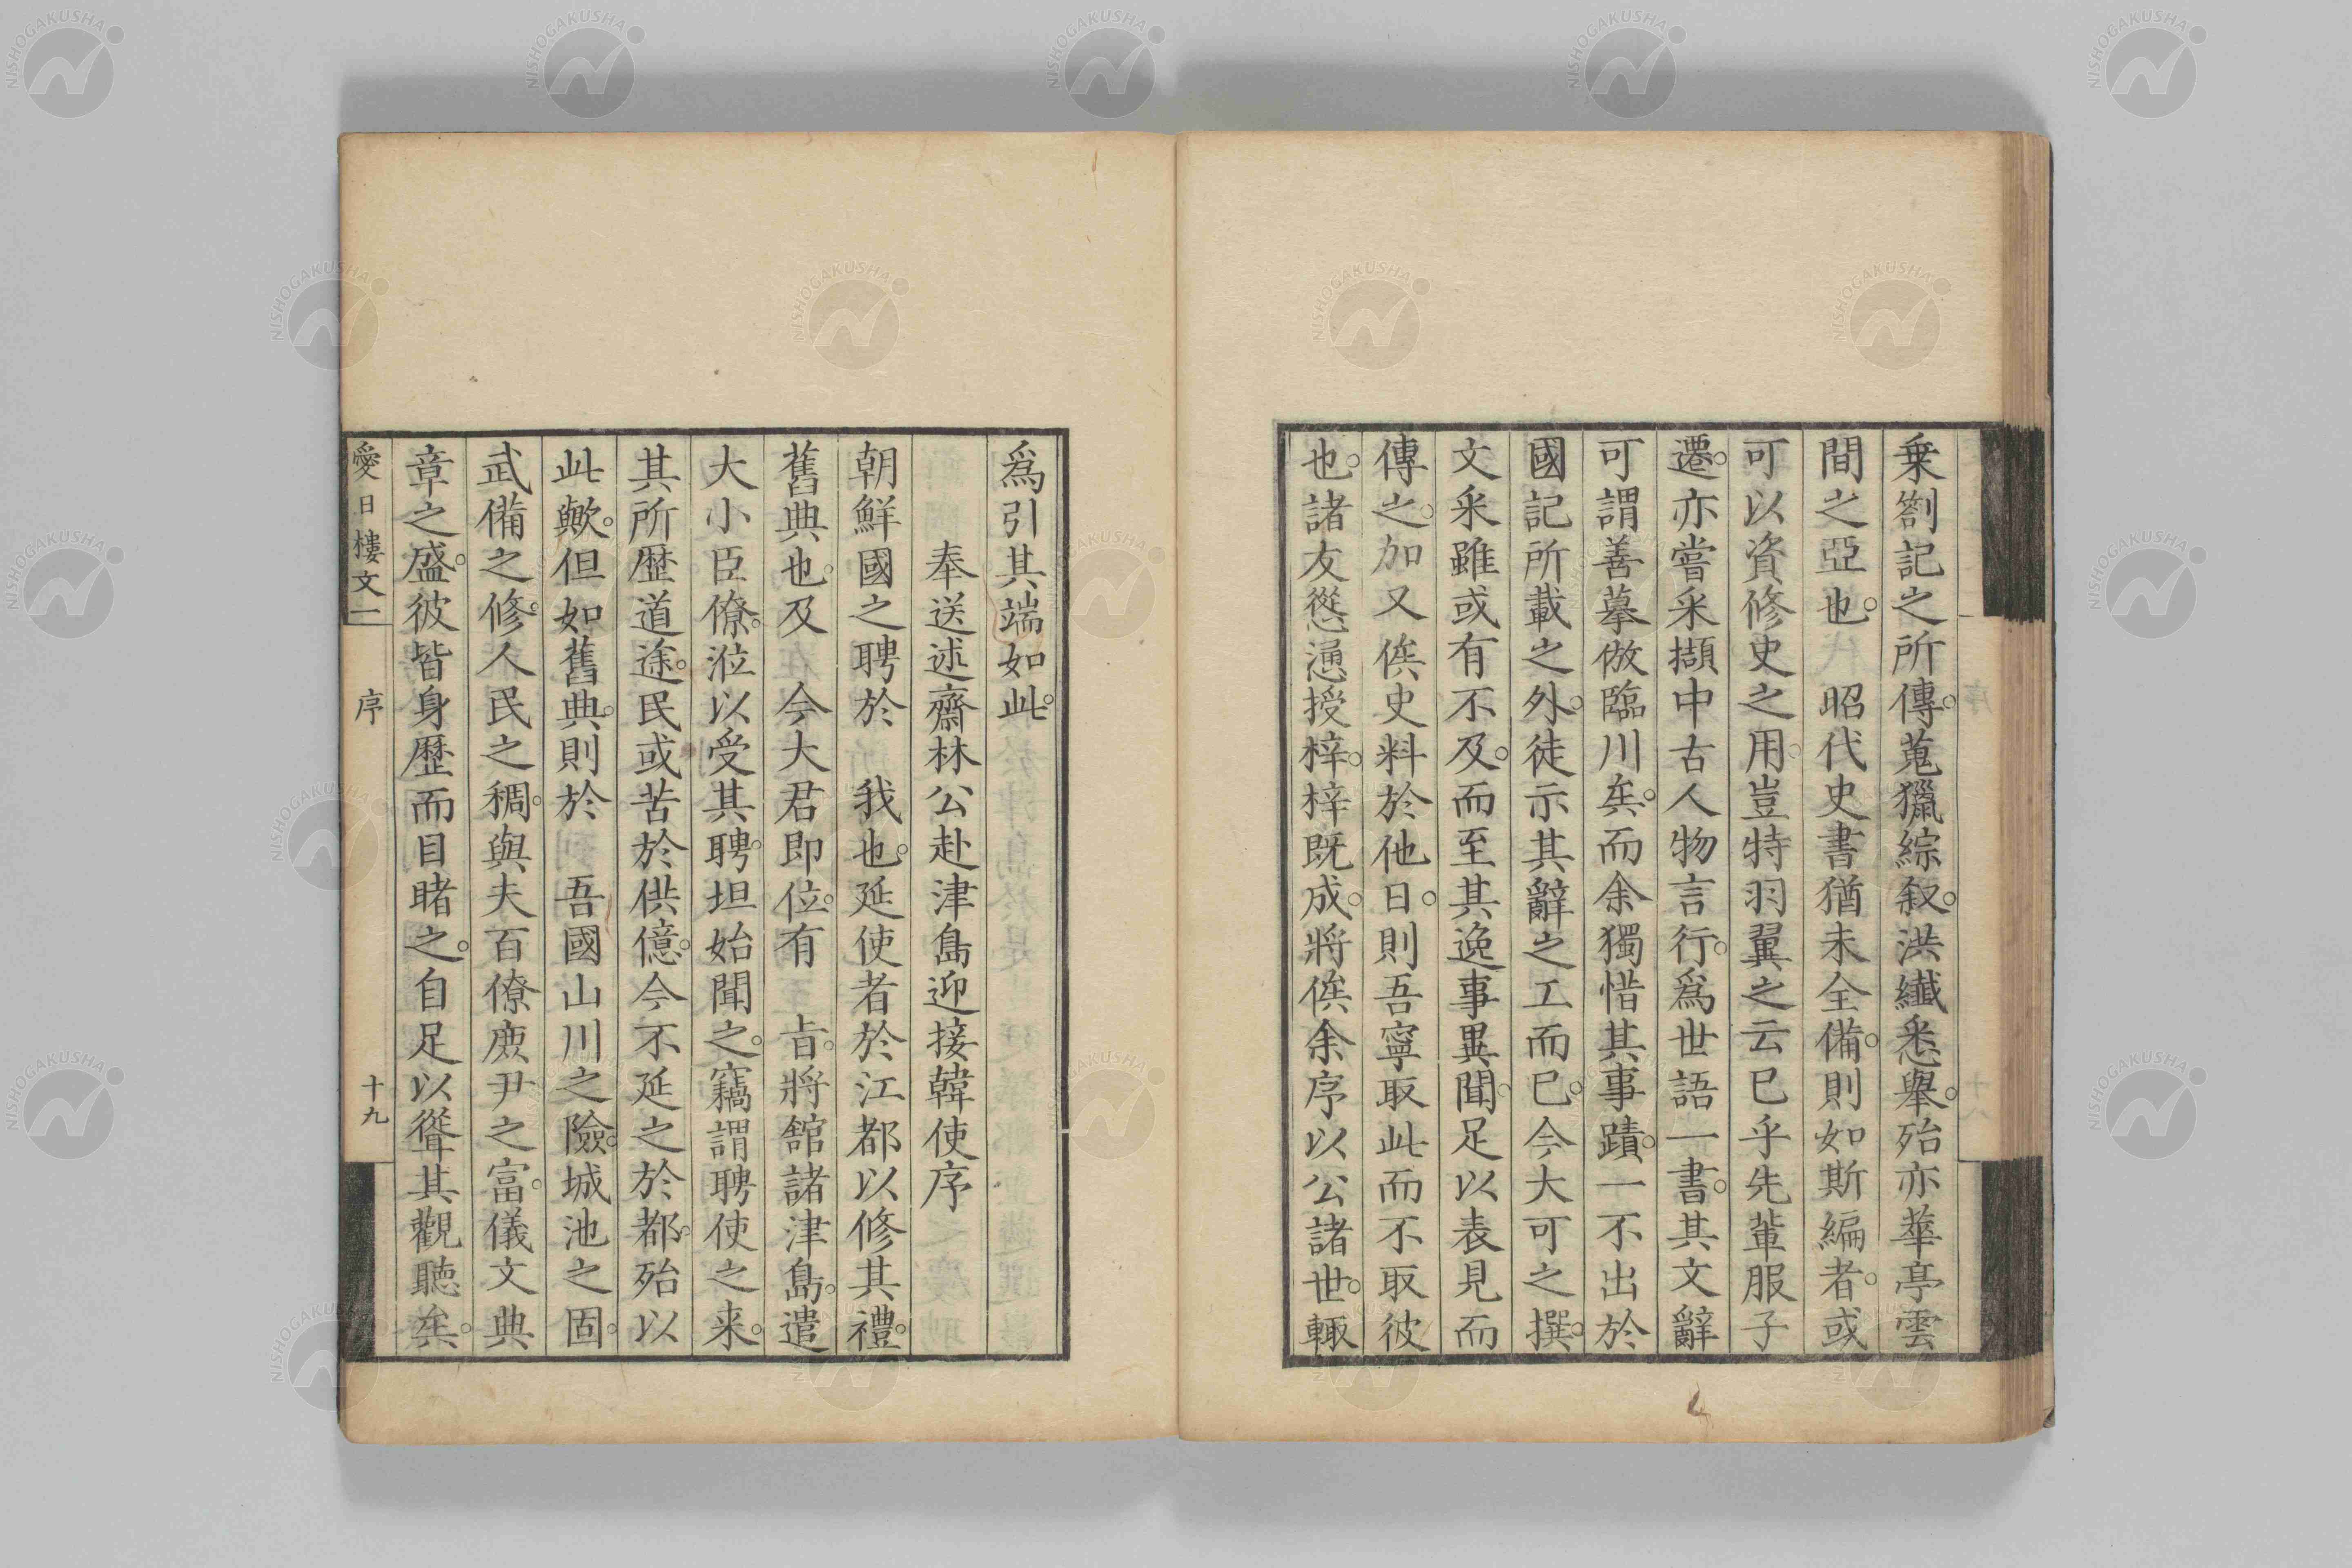 乗劄記之所傳。蒐獵綜叙。洪纖悉舉。殆亦蕐亭雲
間之亞也。 昭代史書猶未全備。則如斯編者。或
可以資修史之用。豈特羽翼之云已乎先輩服子
遷。亦嘗采擷中古人物言行。爲世語一書。其文辭
可謂善摹倣臨川矣。而余獨惜其事蹟。一不出於
國記所載之外。徒示其辭之工而已。今大可之撰。
文釆雖或有不及。而至其逸事異聞。足以表見而
傳之。加又俟史料於他日。則吾寧取此而不取彼
也。諸友慫慂授梓。梓既成。將俟余序以公諸世。輙
爲引其端如此。
奉送述齋林公赴津島迎接韓使序
朝鮮國之聘於 我也。延使者於江都以修其禮。
舊典也。及 今大君即位。有 旨。將舘諸津島。遣
大小臣僚。涖以受其聘。坦始聞之。竊謂聘使之来。
其所歴道途。民或苦於供億。今不延之於都。殆以
此歟。但如舊典。則於 吾國山川之險。城池之固。
武備之修。人民之稠。與夫百僚庶尹之富。儀文典
章之盛。彼皆身歴而目睹之。自足以聳其觀聽矣。
愛日樓文一 序 十九
NISHOGAKUSHA